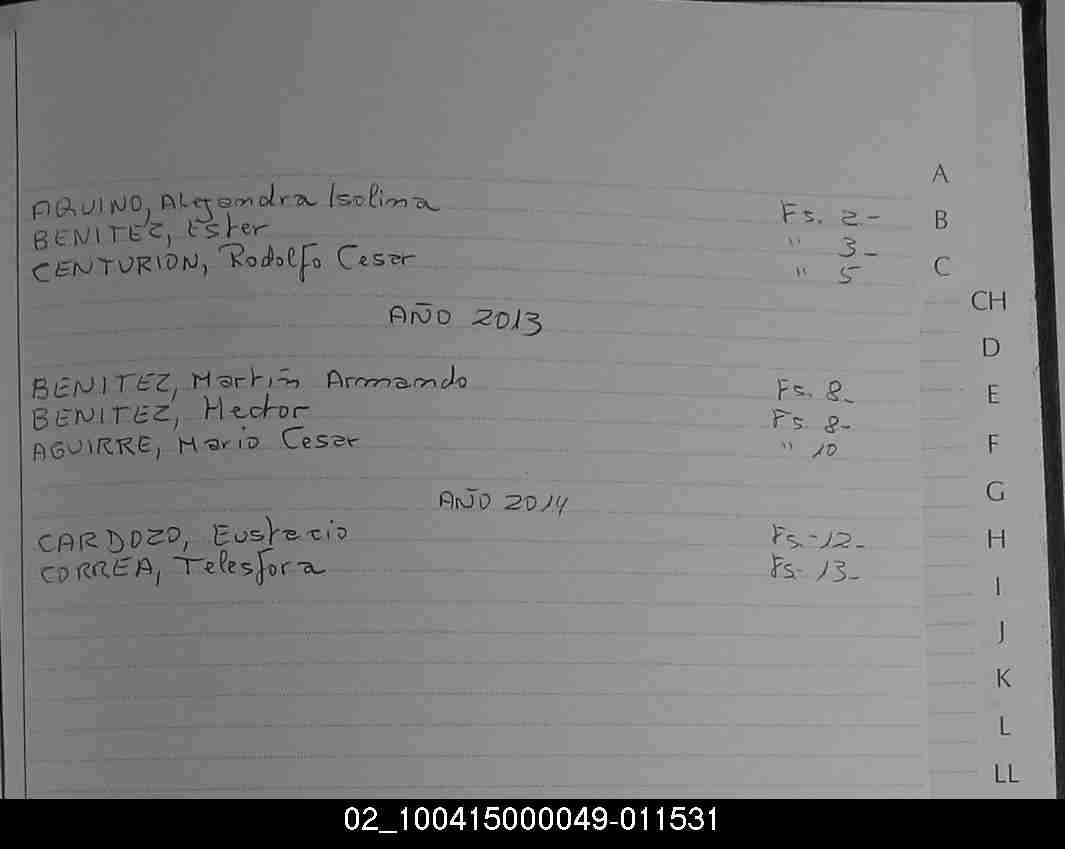 AQUINO, Alejandra Isolina Fs. 2-
BENITEZ, Ester " 3-
CENTURION, Rodolfo Cesar " 5
AÑO 2013
BENITEZ, Martín Armando Fs. 8-
BENITEZ, Hector Fs 8-
AGUIRRE, Mario Cesar " 10
AÑO 2014
CARDOZO, Eustacio Fs.-12-
CORREA, Telesfora Fs- 13-
A
B
C
CH
D
E
F
G
H
I
J
K
L
LL
02_100415000049-011531